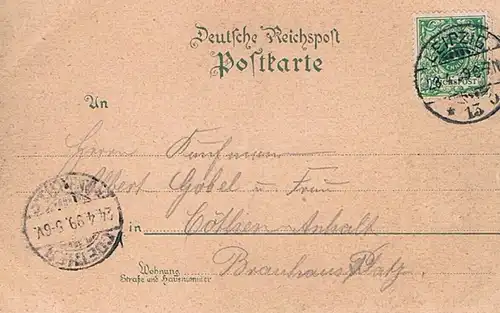 Deutsche Reichspost
Postkarte
LEIPZIG
* 13
An
Herrn Kaufmann
Albert Göbel u. Frau
in Cöthen Anhalt
24.4.99. 5-6V.
Wohnung
Straße und Hausnummer
Brauhaus Platz